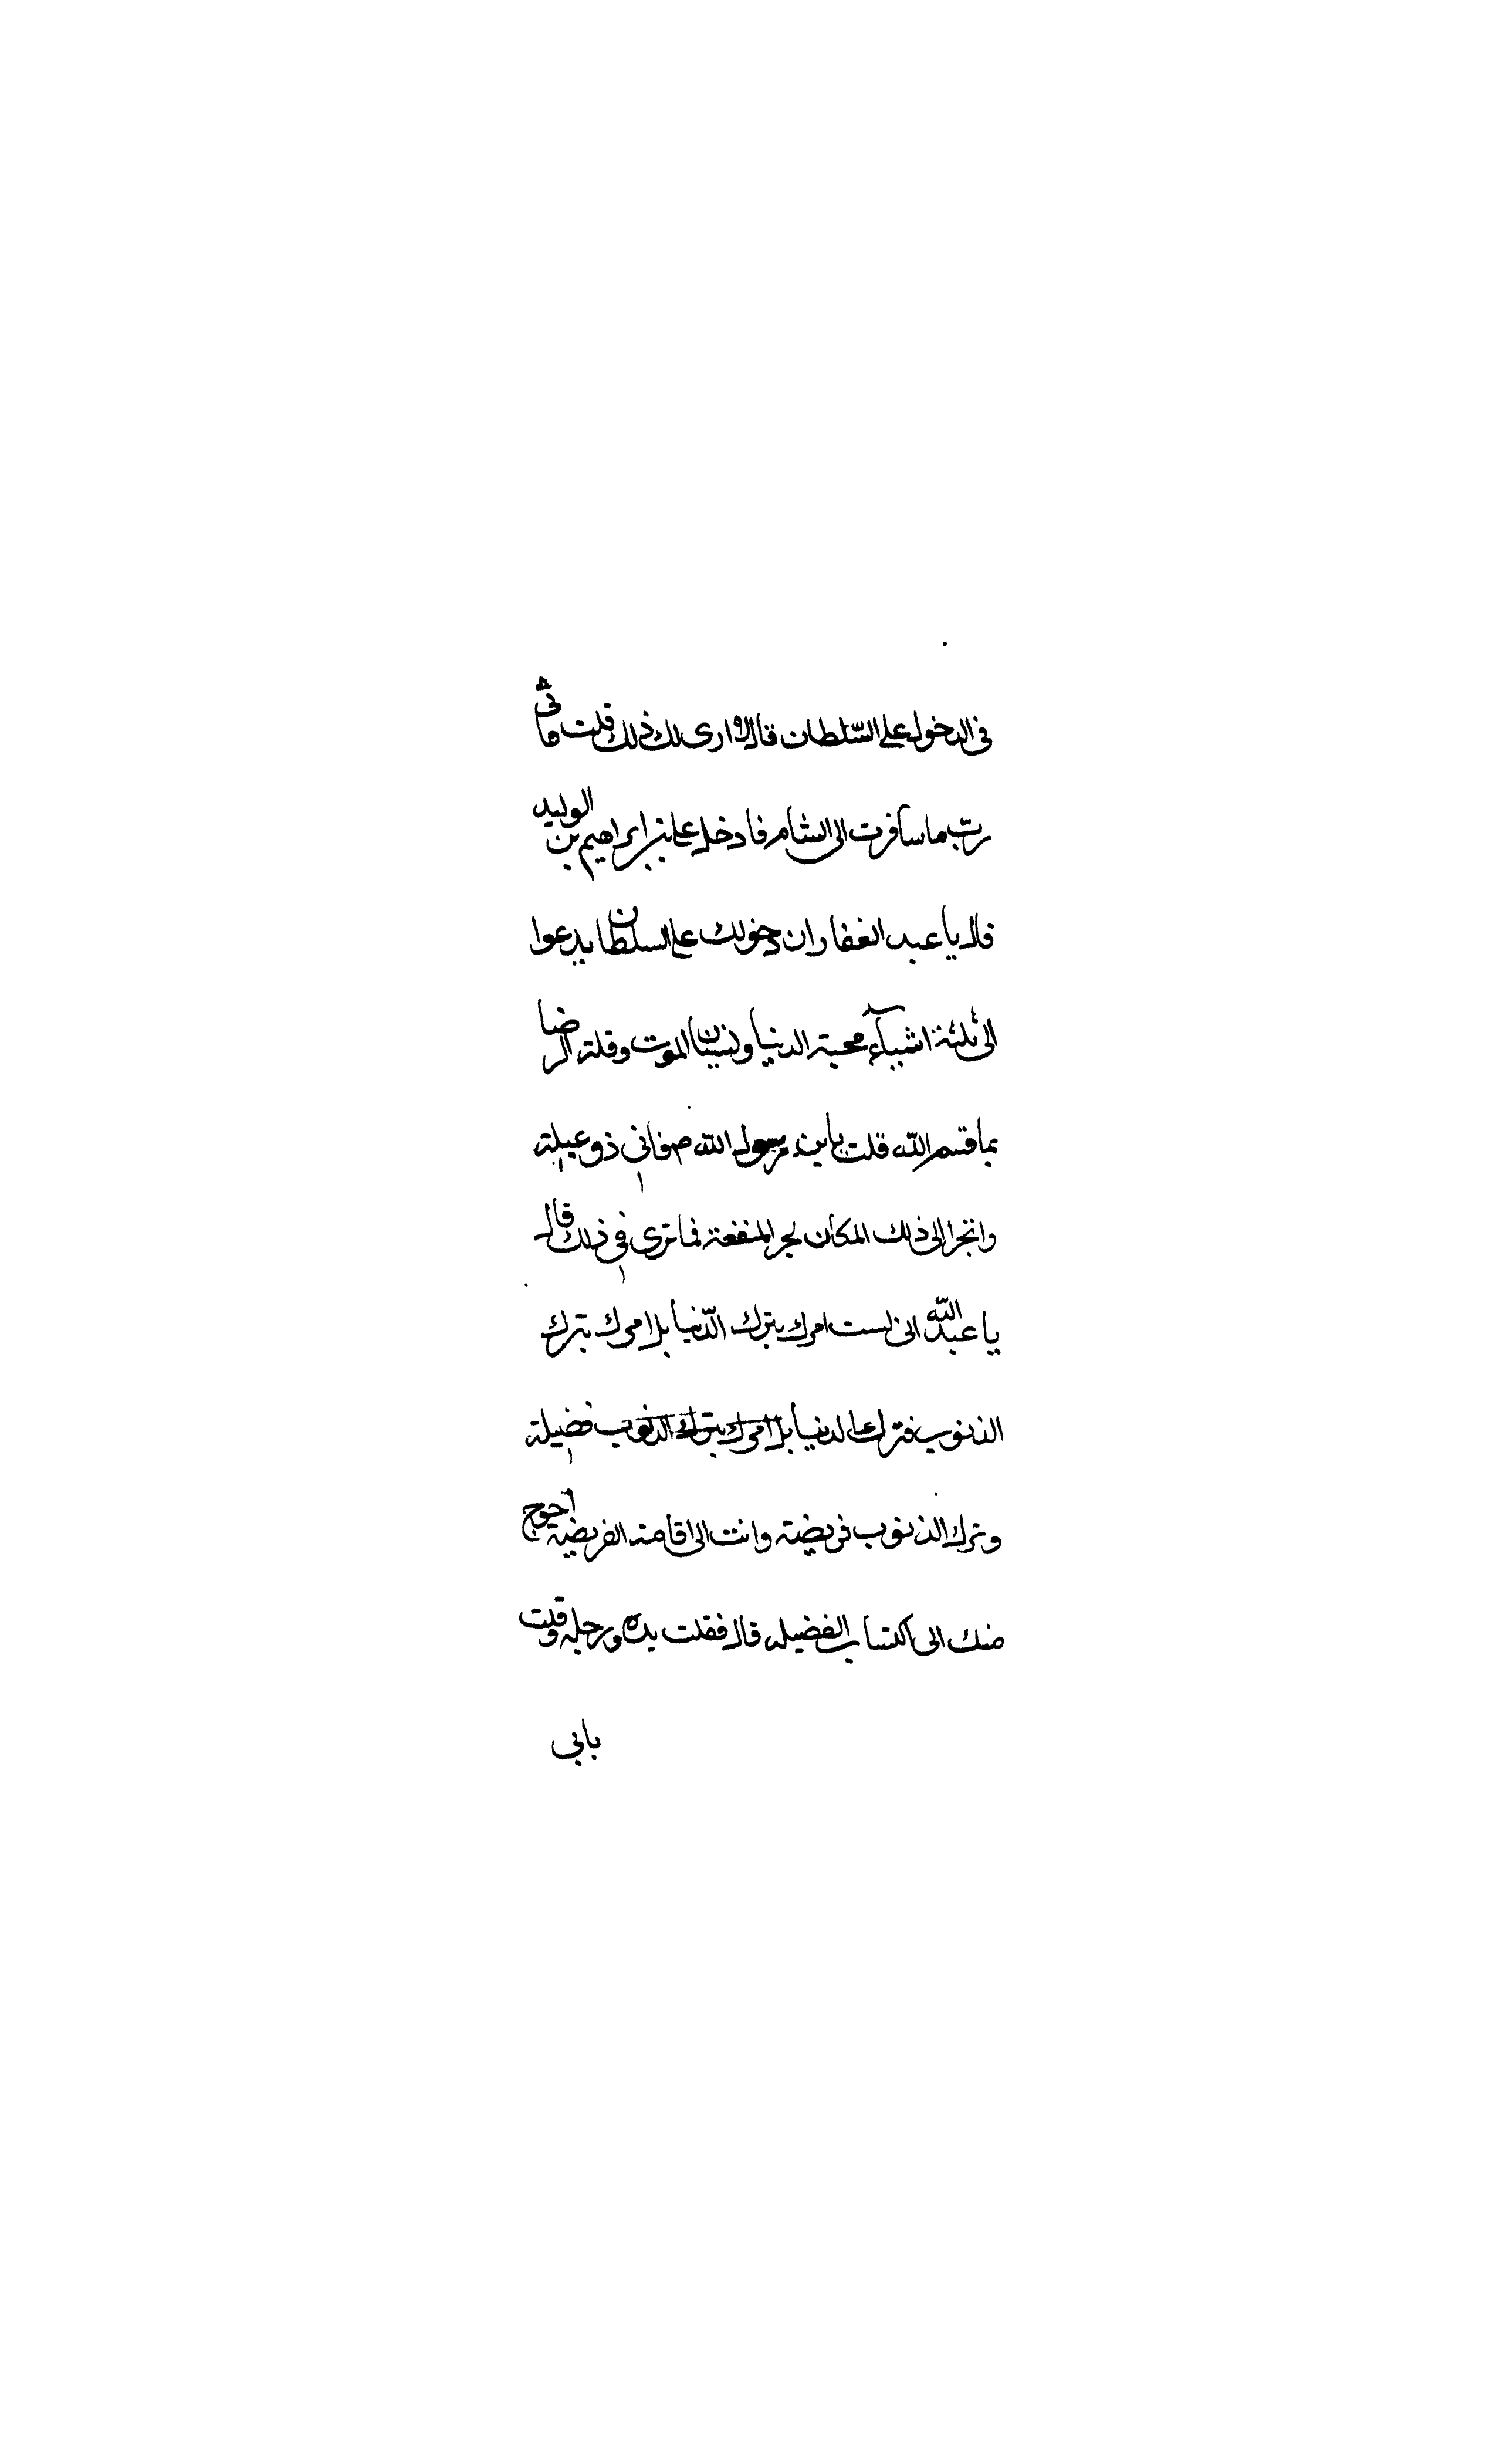 في الدخول على السّلطان قال لا ارى لك ذلك قلت فانى
ربّما سافرت الى الشام فادخل على ابراهيم بن الوليد
قال يا عبد الغفار ان دخولك على السلطان يدعوا
الى ثلثة اشيآء محبة الدنيا ونسيان الموت وقلة الرضا
بما قسم الله قلت يابن رسول الله فانى ذو عيلة
واتجر الى ذلك المكان لجر المنفعة فما ترى فى ذلك قال
يا عبد الله انى لست امرك بترك الدّنيا بل امرك بترك
الذنوب فترك الدنيا بل امرك بترك الذنوب فضيلة
وترك الذنوب فريضة وانت الى اقامة الفريضة احوج
منك الى اكتساب الفضيله قال فقلت يده ورجله وقلت
بابى